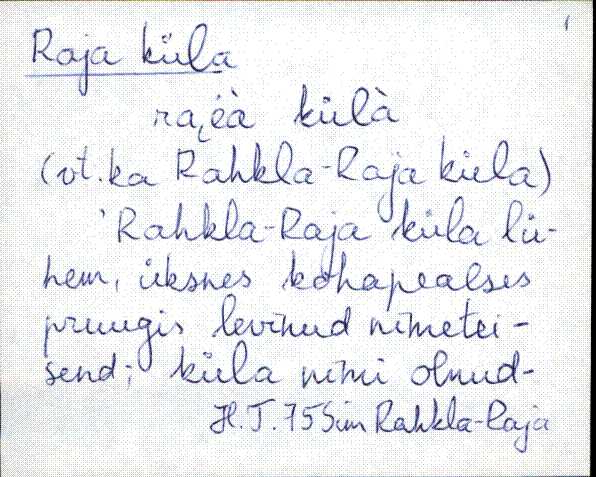 1
Raja küla
külà
(vt. ka Rahkla-Raja küla)
'Rahkla-Raja küla lü-
hem, üksnes kohapealses
pruugis levinud nimetei-
send; küla nimi olnud-
H.T. 75 Sim Rahkla-Raja